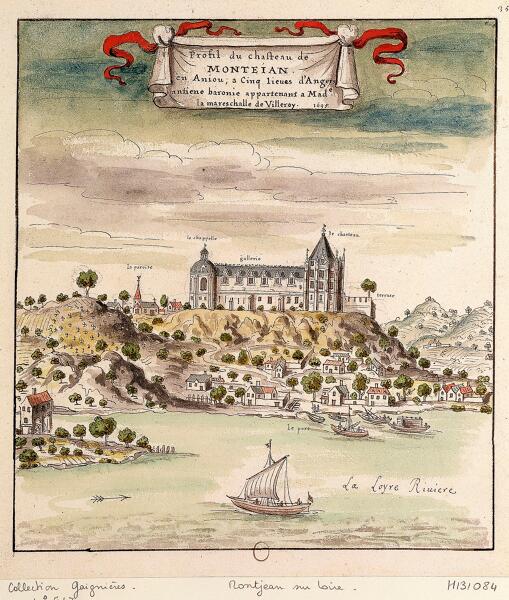 Profil du chasteau de
MONTEIAN.
en Aniou, a Cinq lieues d'Angers
antiene baronie appartenant a Mad.e
la mareschalle de Villeroy. 1695
la chappelle
gallerie
le chasteau
la paroice
terrasse
Le port
La Loyre Riuiere
Collection Gaignières.
Montjean sur Loire.
H131084